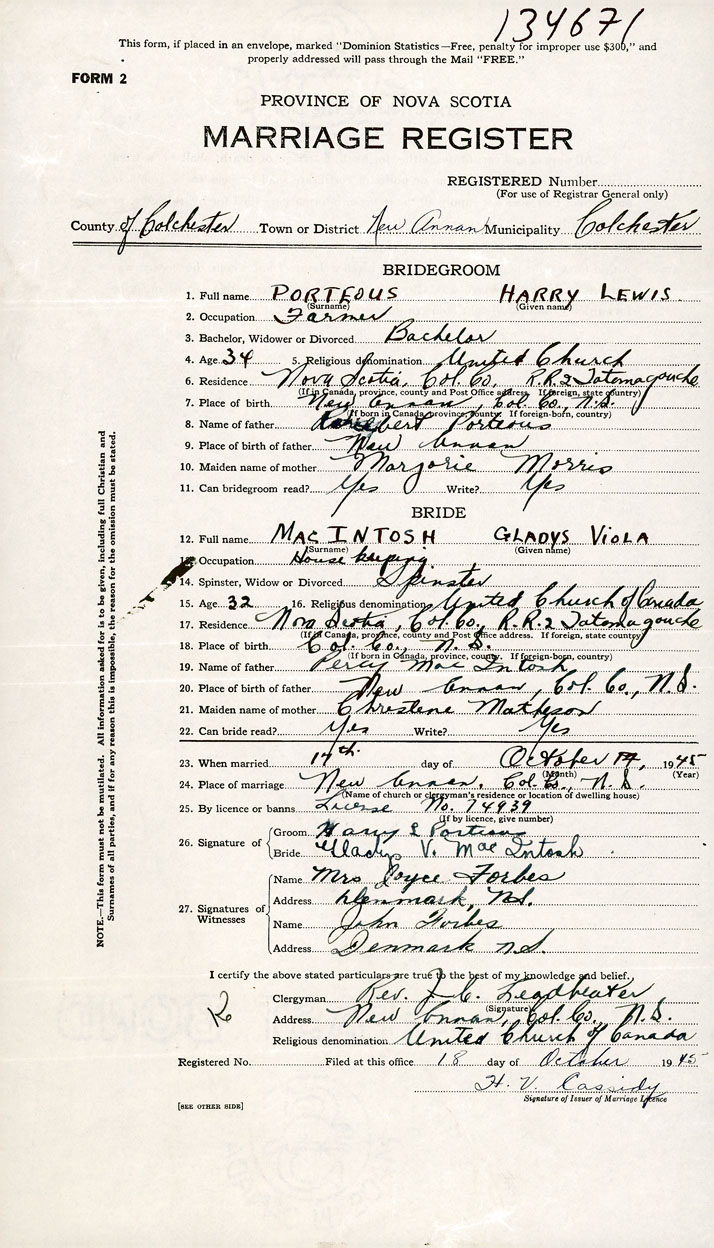 134671
This form, if placed in an envelope, marked "Dominion Statistics—Free, penalty for improper use $300," and
properly addressed will pass through the Mail "FREE."
FORM 2
PROVINCE OF NOVA SCOTIA
MARRIAGE REGISTER
REGISTERED Number
(For use of Registrar General only)
County of Colchester Town or District New Annan Municipality Colchester
BRIDEGROOM
1. Full name PORTEOUS HARRY LEWIS.
(Surname) (Given name)
2. Occupation Farmer
3. Bachelor, Widower or Divorced Bachelor
4. Age 34 5. Religious denomination United Church
6. Residence Nova Scotia, Col. Co., R.R.2 Tatamagouche
(If in Canada, province, county and Post Office address. If foreign, state country)
7. Place of birth New Annan, Col. Co., N.S.
(If born in Canada, province, county. If foreign-born, country)
8. Name of father Porteous
9. Place of birth of father New Annan
10. Maiden name of mother Marjorie Morris
11. Can bridegroom read? Yes Write? Yes
BRIDE
12. Full name MACINTOSH GLADYS VIOLA
(Surname) (Given name)
13. Occupation House keeping.
14. Spinster, Widow or Divorced Spinster
15. Age 32 16. Religious denomination United Church of Canada
17. Residence Nova Scotia, Col. Co., R.R.2 Tatamagouche
(If in Canada, province, county, and Post Office address. If foreign, state country)
18. Place of birth Col. Co., N.S.
(If born in Canada, province, county. If foreign-born, country)
19. Name of father Percy MacIntosh
20. Place of birth of father New Annan, Col. Co., N.S.
21. Maiden name of mother Christene Matheson
22. Can bride read? Yes Write? Yes
23. When married 17th. day of October 17, 1945
(Month) (Year)
24. Place of marriage New Annan, Col. Co., N.S.
(Name of church or clergyman's residence or location of dwelling house)
25. By licence or banns License No. 74939
(If by licence, give number)
26. Signature of
Groom Harry L Porteous
Bride Gladys V. MacIntosh
27. Signatures of Witnesses
Name Mrs Joyce Forbes
Address Denmark, N.S.
Name John Forbes
Address Denmark N.S.
I certify the above stated particulars are true to the best of my knowledge and belief.
Clergyman Rev. J. C. Leadbeater
(Signature)
Address New Annan, Col. Co., N.S.
Religious denomination United Church of Canada
Registered No. Filed at this office 18 day of October 1945
H. V. Cassidy
Signature of Issuer of Marriage Licence
[SEE OTHER SIDE]
NOTE.—This form must not be mutilated. All information asked for is to be given, including full Christian and
Surnames of all parties, and if for any reason this is impossible, the reason for the omission must be stated.